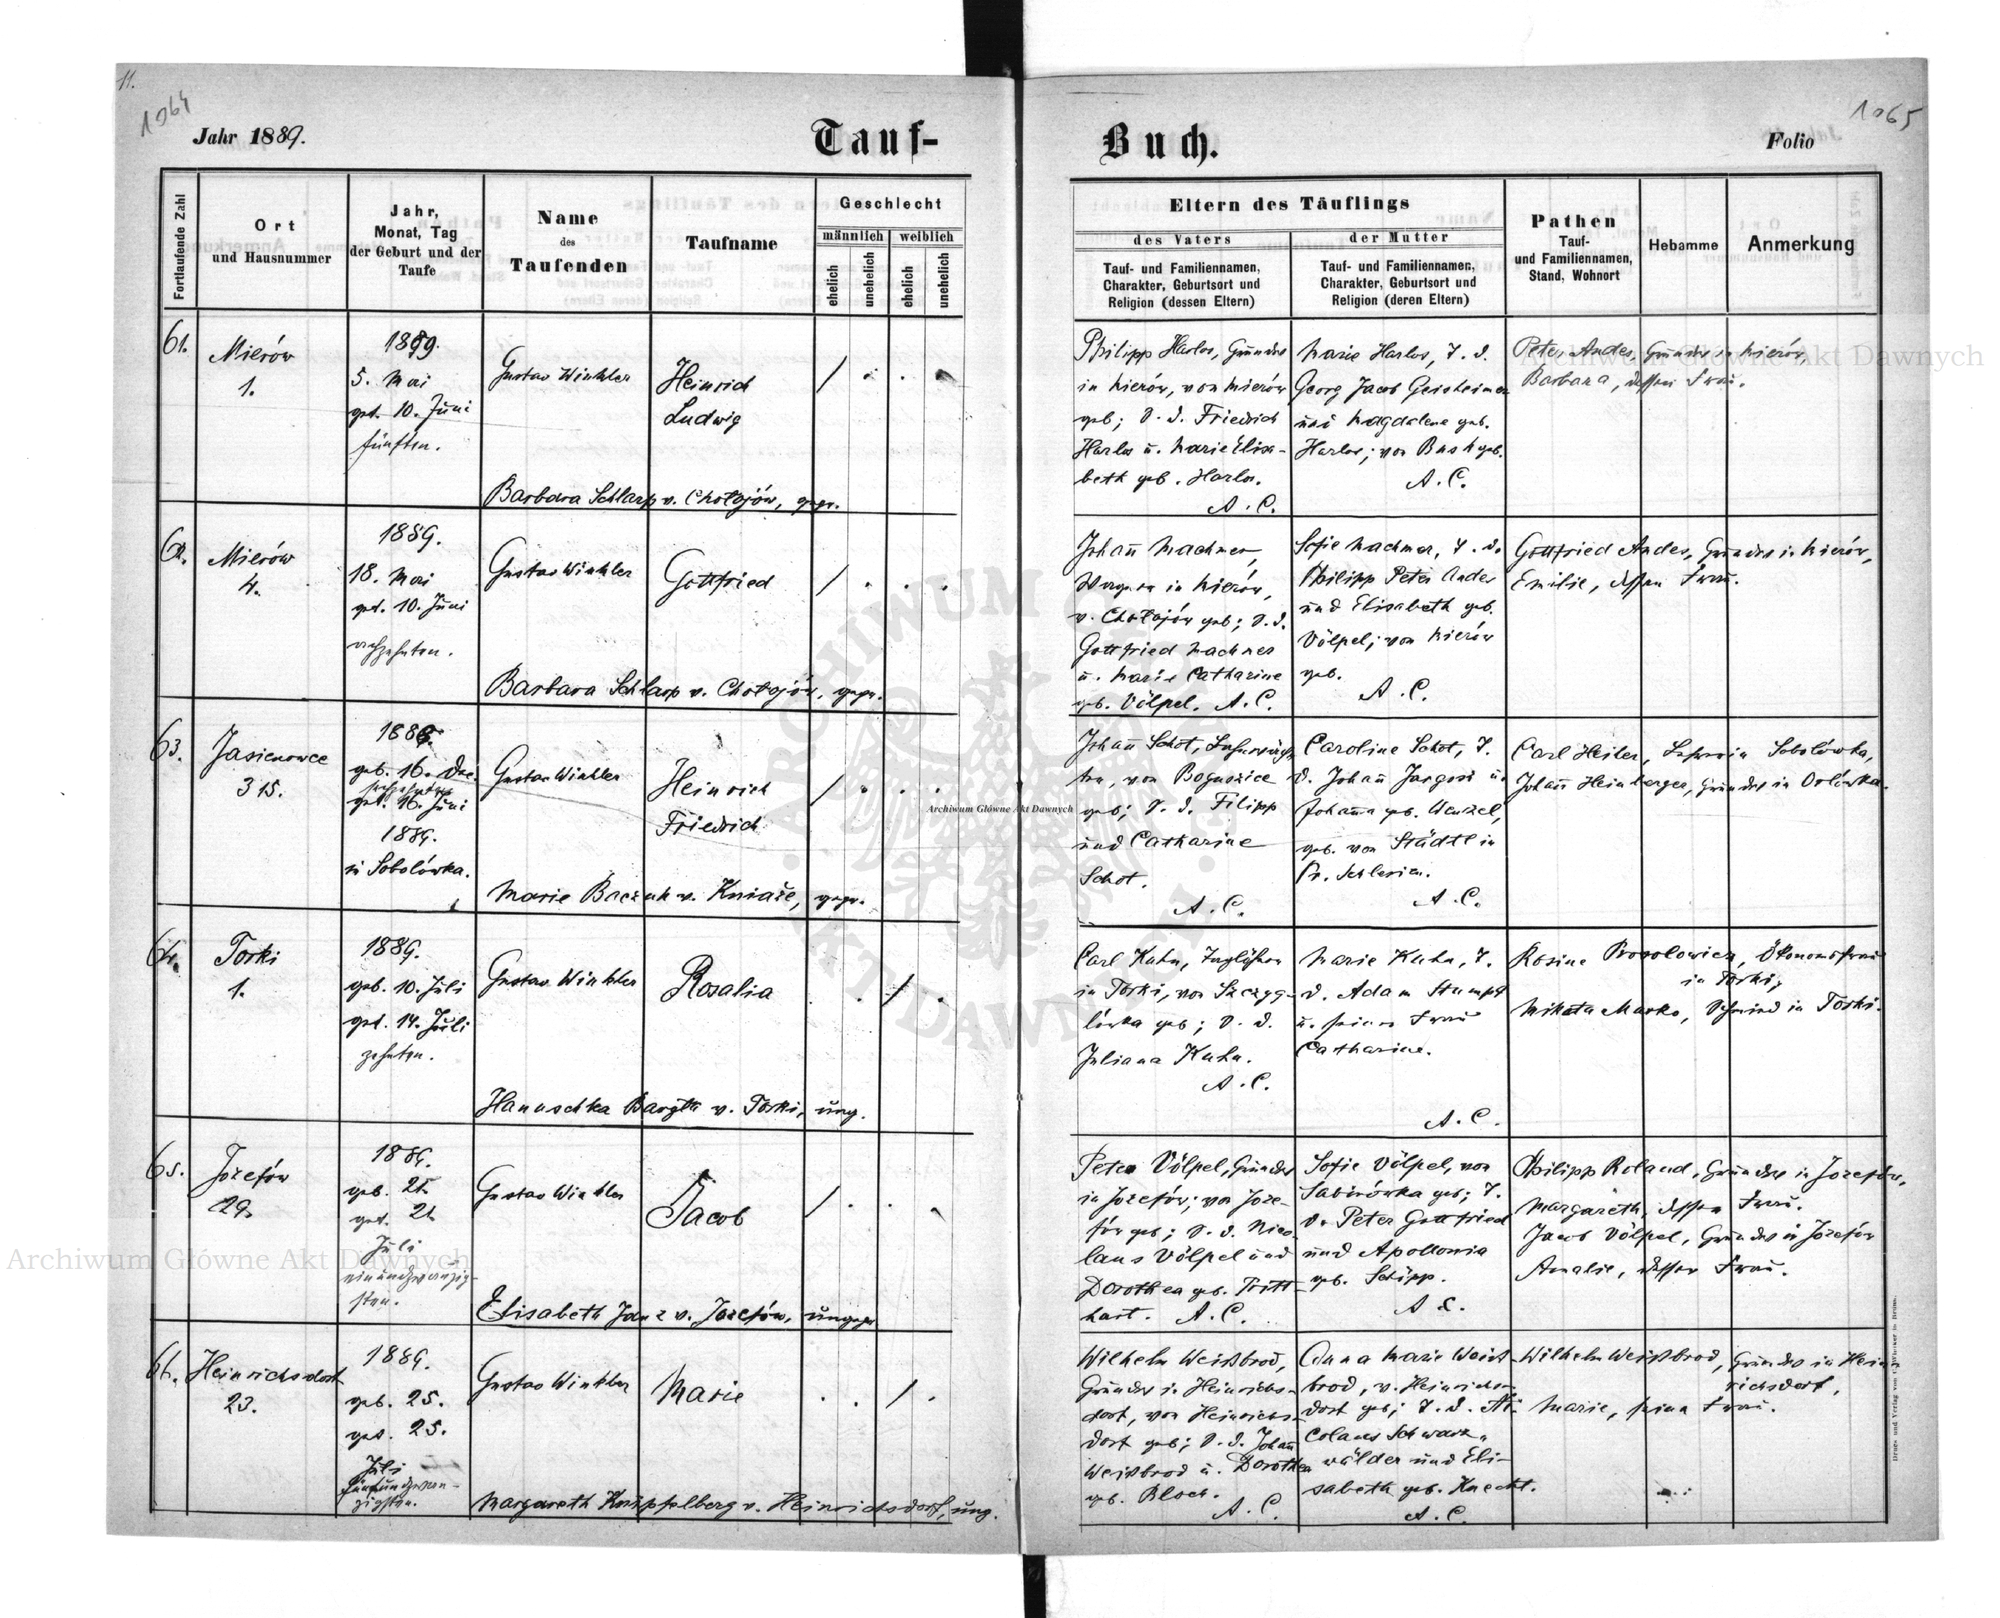 11.
1064
Jahr 1889.
Tauf-
Fortlaufende Zahl
Ort
und Hausnummer
Jahr,
Monat, Tag
der Geburt und der
Taufe
Name
des
Taufenden
Taufname
Geschlecht
männlich
weiblich
ehelich
unehelich
ehelich
unehelich
61.
Mierów
1.
1889.
5. Mai
get. 10. Juni
fünften.
Gustav Winkler
Heinrich
Ludwig
Barbara Schlarp v. Chołojów, gepr.
62.
Mierów
4.
1889.
18. Mai
get. 10. Juni
achzehnten.
Gustav Winkler
Gottfried
Barbara Schlarp v. Chołojów, gepr.
63.
Jasienowce
315.
geb. 16. Dec.
get. 16. Juni
1889.
in Sobolówka.
Gustav Winkler
Heinrich
Friedrich
Marie Baczuk v. Kniaże, gepr.
64.
Torki
1.
1889.
geb. 10. Juli
get. 14. Juli
zehnten.
Gustav Winkler
Rosalia
Hanuschka v. Torki, ung.
65.
Józefów
29.
1889.
geb. 21.
get. 21.
Juli
einundzwanzig-
sten.
Gustav Winkler
Jacob
Elisabeth Janz v. Józefów, ungepr.
66.
Heinrichsdorf
23.
1889.
geb. 25.
get. 25.
Juli
fünfundzwan-
zigsten.
Gustav Winkler
Marie
Margareth Knippelberg v. Heinrichsdorf, ung.
1065
Buch.
Folio
Eltern des Täuflings
des Vaters
der Mutter
Tauf- und Familiennamen,
Charakter, Geburtsort und
Religion (dessen Eltern)
Tauf- und Familiennamen,
Charakter, Geburtsort und
Religion (deren Eltern)
Pathen
Tauf-
und Familiennamen,
Stand, Wohnort
Hebamme
Anmerkung
Philipp Harlos, Grundw
in Mierów, von Mierów
geb; S. d. Friedrich
Harlos u. Marie Elisa-
beth geb. Harlos.
A. C.
Marie Harlos, T. d.
Georg Jacob Geisheimer
und Magdalene geb.
Harlos; von Busk geb.
A. C.
Peter Andes, Grundw in Mierów,
Barbara, dessen Frau.
Johann Machmer,
Wagner in Mierów,
v. Chołojów geb; S. d.
Gottfried Machmer
u. Marie Catharine
geb. Völpel. A. C.
Sofie Machmer, T. d.
Philipp Peter Andes
und Elisabeth geb.
Völpel; von Mierów
geb.
A. C.
Gottfried Andes, Grundw in Mierów,
Emilie, dessen Frau.
Johann Schot,
von Boguszice
geb; S. d. Filipp
und Catharine
Schot.
A. C.
Caroline Schot, T.
d. Johann Jargosi u.
Johanna geb. Wenzel,
geb. von Städtl in
Pr. Schlesien.
A. C.
Carl Heiler, Lehrer in Sobolówka,
Johann Heinberger, Grundw in Orlówka.
Carl Kuhn,
in Torki, von Szczyg-
lówka geb; S. d.
Juliana Kuhn.
A. C.
Marie Kuhn, T.
d. Adam Stumpf
u. seiner Frau
Catharine.
A. C.
Rosine Ökonomsfrau
in Torki,
Mikita Marko, Schmied in Torki.
Peter Völpel, Grundw
in Józefów; von Józe-
fów geb; S. d. Nico-
laus Völpel und
Dorothea geb. Pritt-
hart. A. C.
Sofie Völpel, von
Sabinówka geb; T.
d. Peter Gottfried
und Apollonia
geb. Schipp.
A. C.
Philipp Roland, Grundw in Józefów,
Margareth, dessen Frau.
Jacob Völpel, Grundw in Józefów
Amalie, dessen Frau.
Wilhelm Weißbrod,
Grundw in Heinrichs-
dorf, von Heinrichs-
dorf geb; S. d. Johann
Weißbrod u. Dorothea
geb. Bloch.
A. C.
Anna Marie Weiß-
brod, v. Heinrichs-
dorf geb; T. d. Ni-
colaus Schwarz-
wälder und Eli-
sabeth geb. Knecht.
A. C.
Wilhelm Weißbrod, Grundw in Hein-
richsdorf,
Marie, seine Frau.
Archiwum Główne Akt Dawnych
Archiwum Główne Akt Dawnych
Archiwum Główne Akt Dawnych
ARCHIWUM GŁÓWNE AKT DAWNYCH